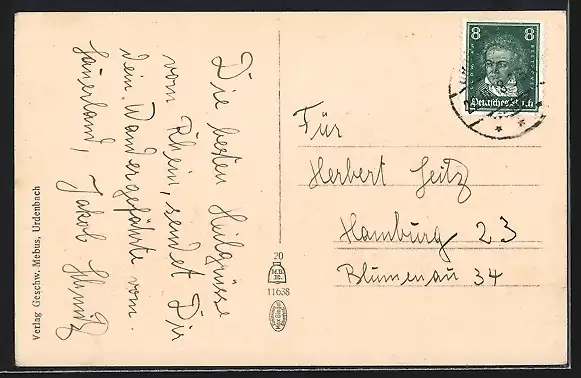 Die besten Heilgrüsse
vom Rhein, sendet Dir
dein Wandergefährte vom.
Sauerland, Jakob Schmitz
Für
Herbert Seitz
Hamburg 23
Blumenau 34
8 8
Deutsches Reich
20
M.B.
11638
Verlag Geschw. Mebus, Urdenbach